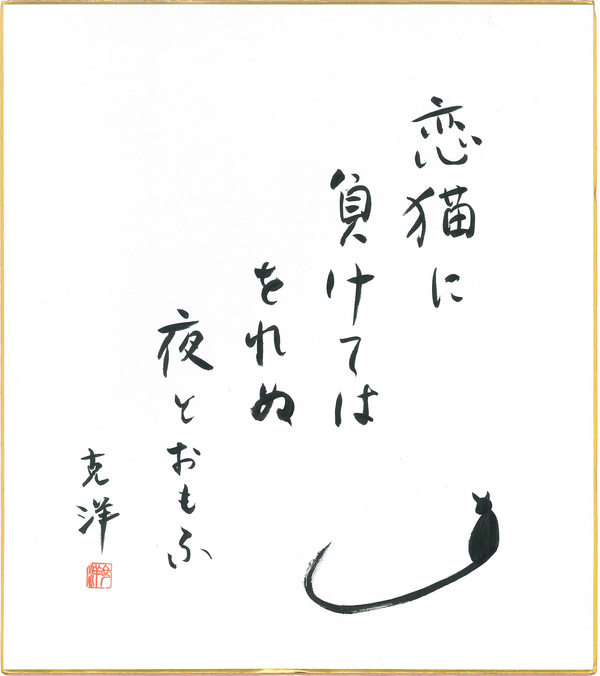 恋猫に
負けては
をれぬ
夜とおもふ
克洋